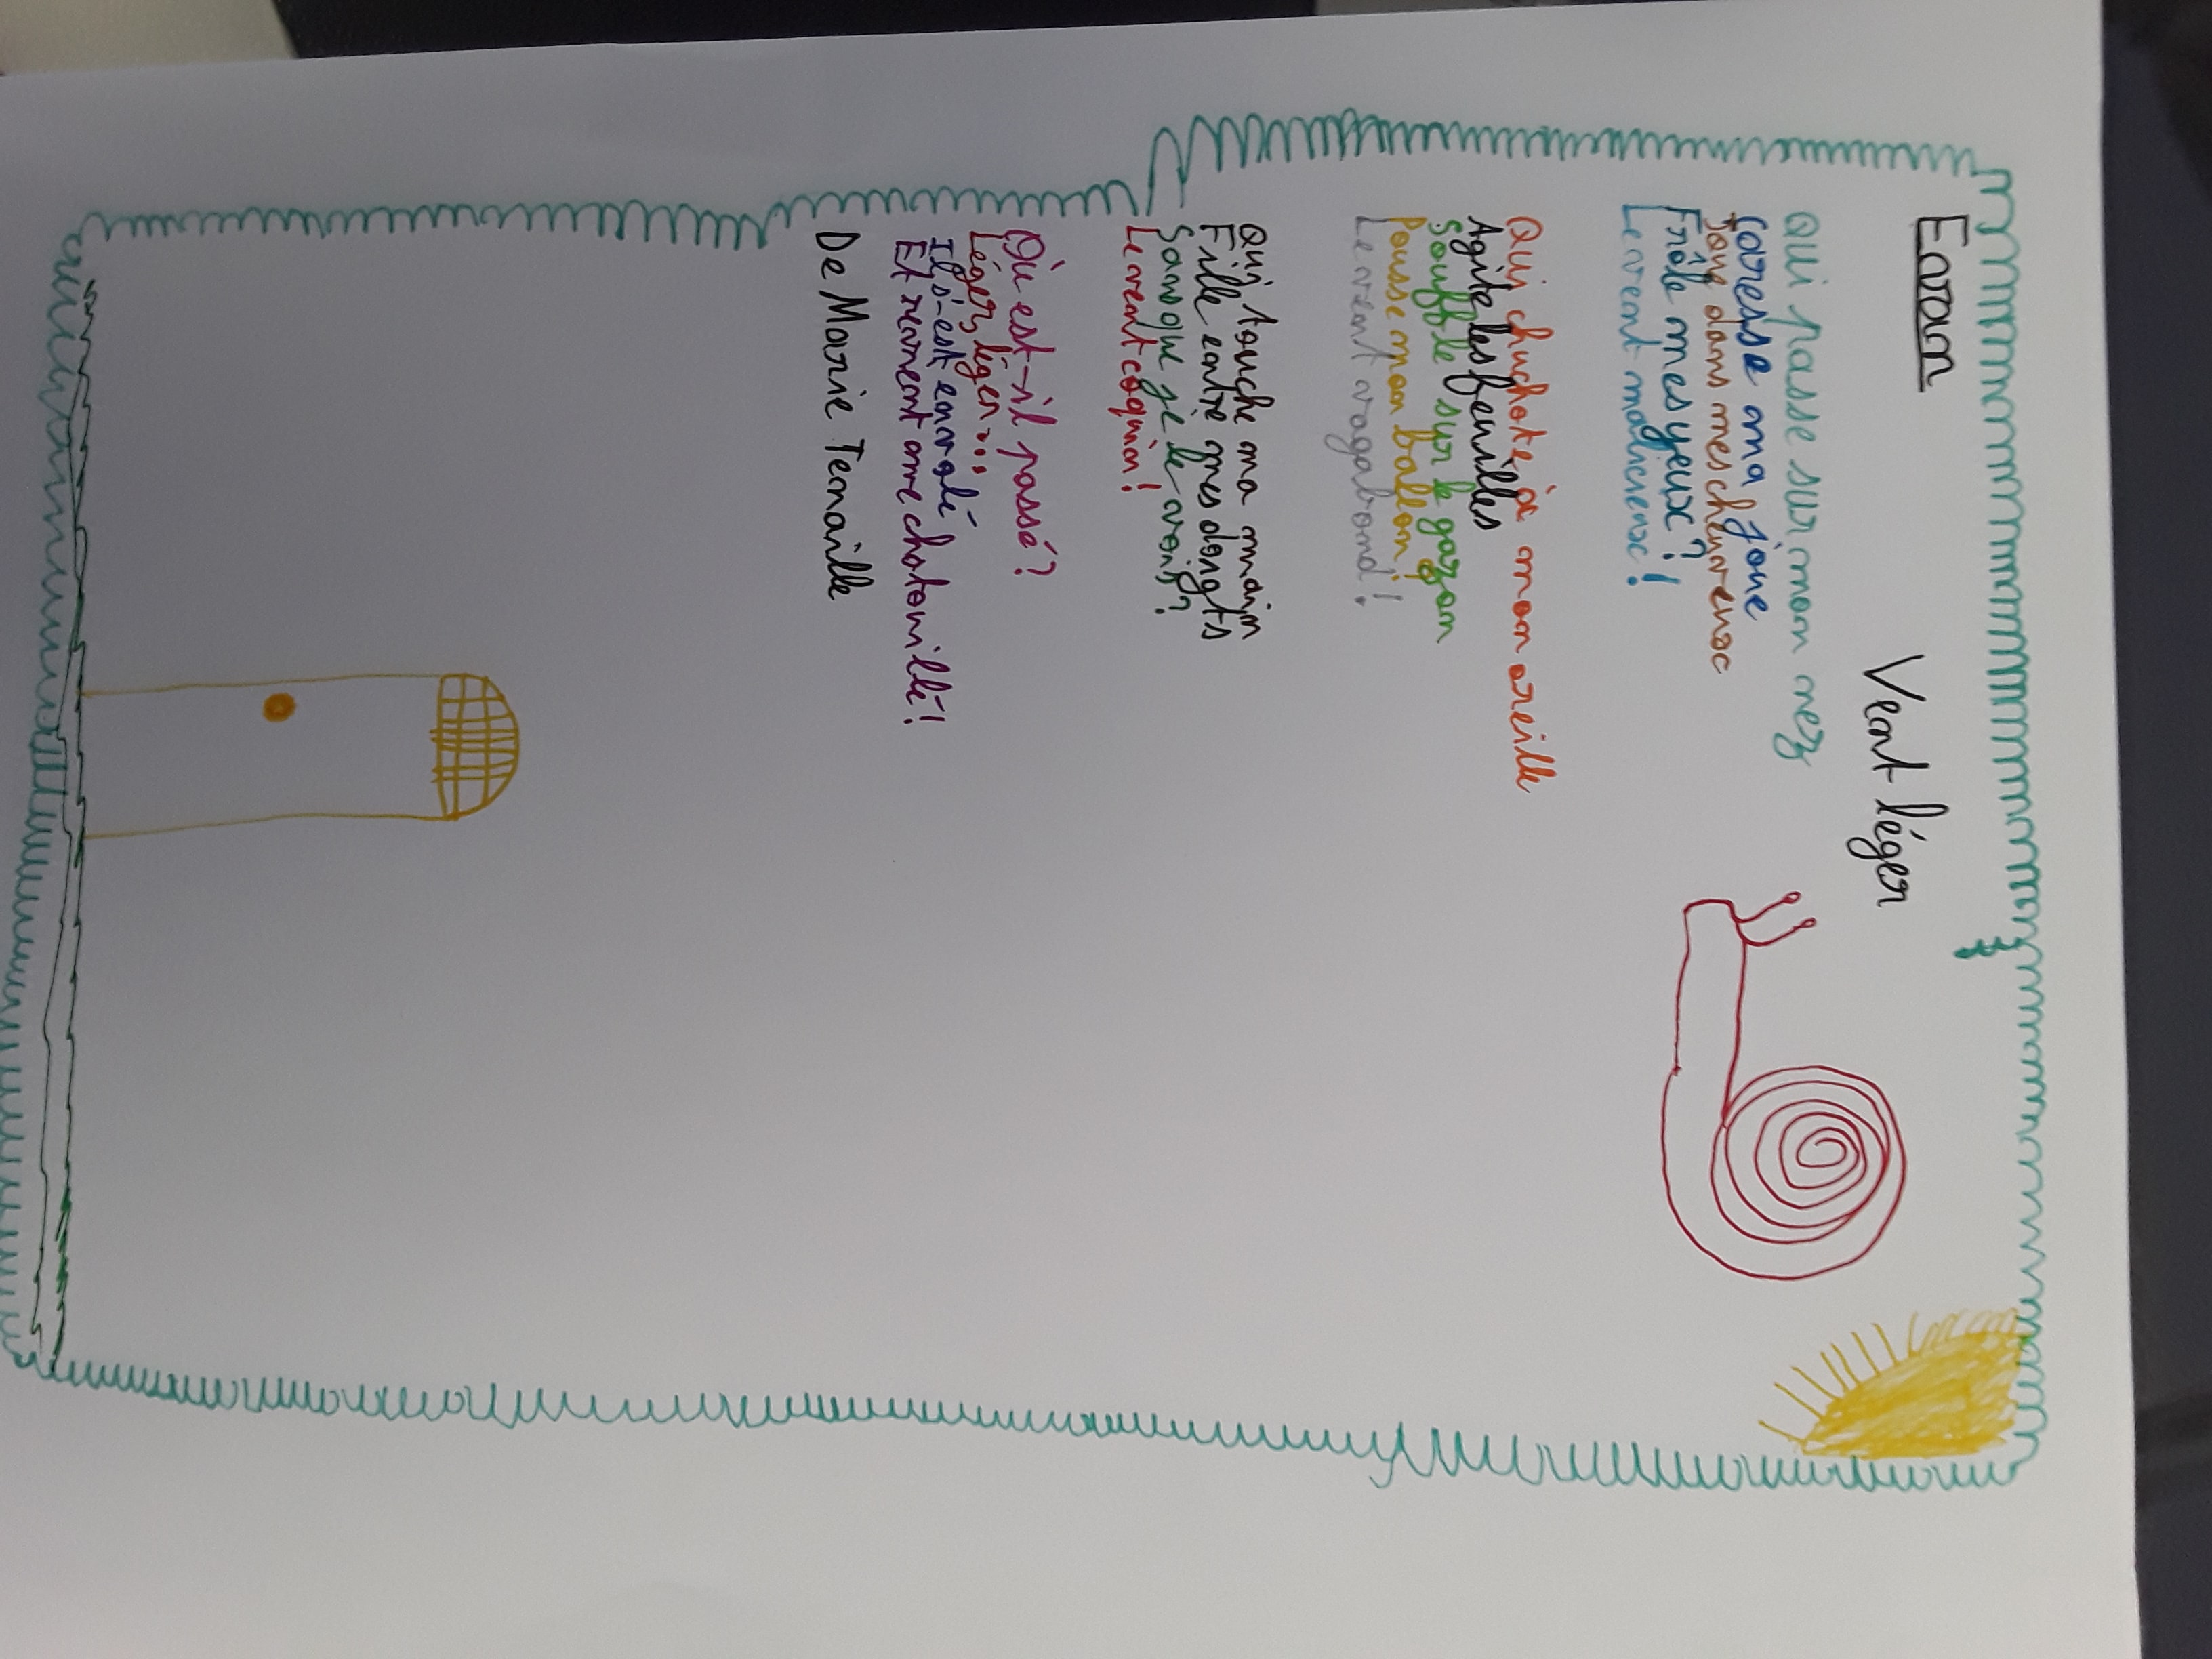 Evan
Vent léger
Qui passe sur mon nez
Caresse ma joue
Joue dans mes cheuveux
Frôle mes yeux?
Le vent malicieux!
Qui chuchote à mon oreille
Agite les feuilles
Souffle sur le gazon
Pousse mon ballon?
Le vent vagabond!
Qui touche ma main
File entre mes doigts
Sans que je le vois?
Le vent coquin!
Où est-il passé?
Léger, léger...
Il s'est envolé
Et revient me chatouillé!
De Marie Tenaille